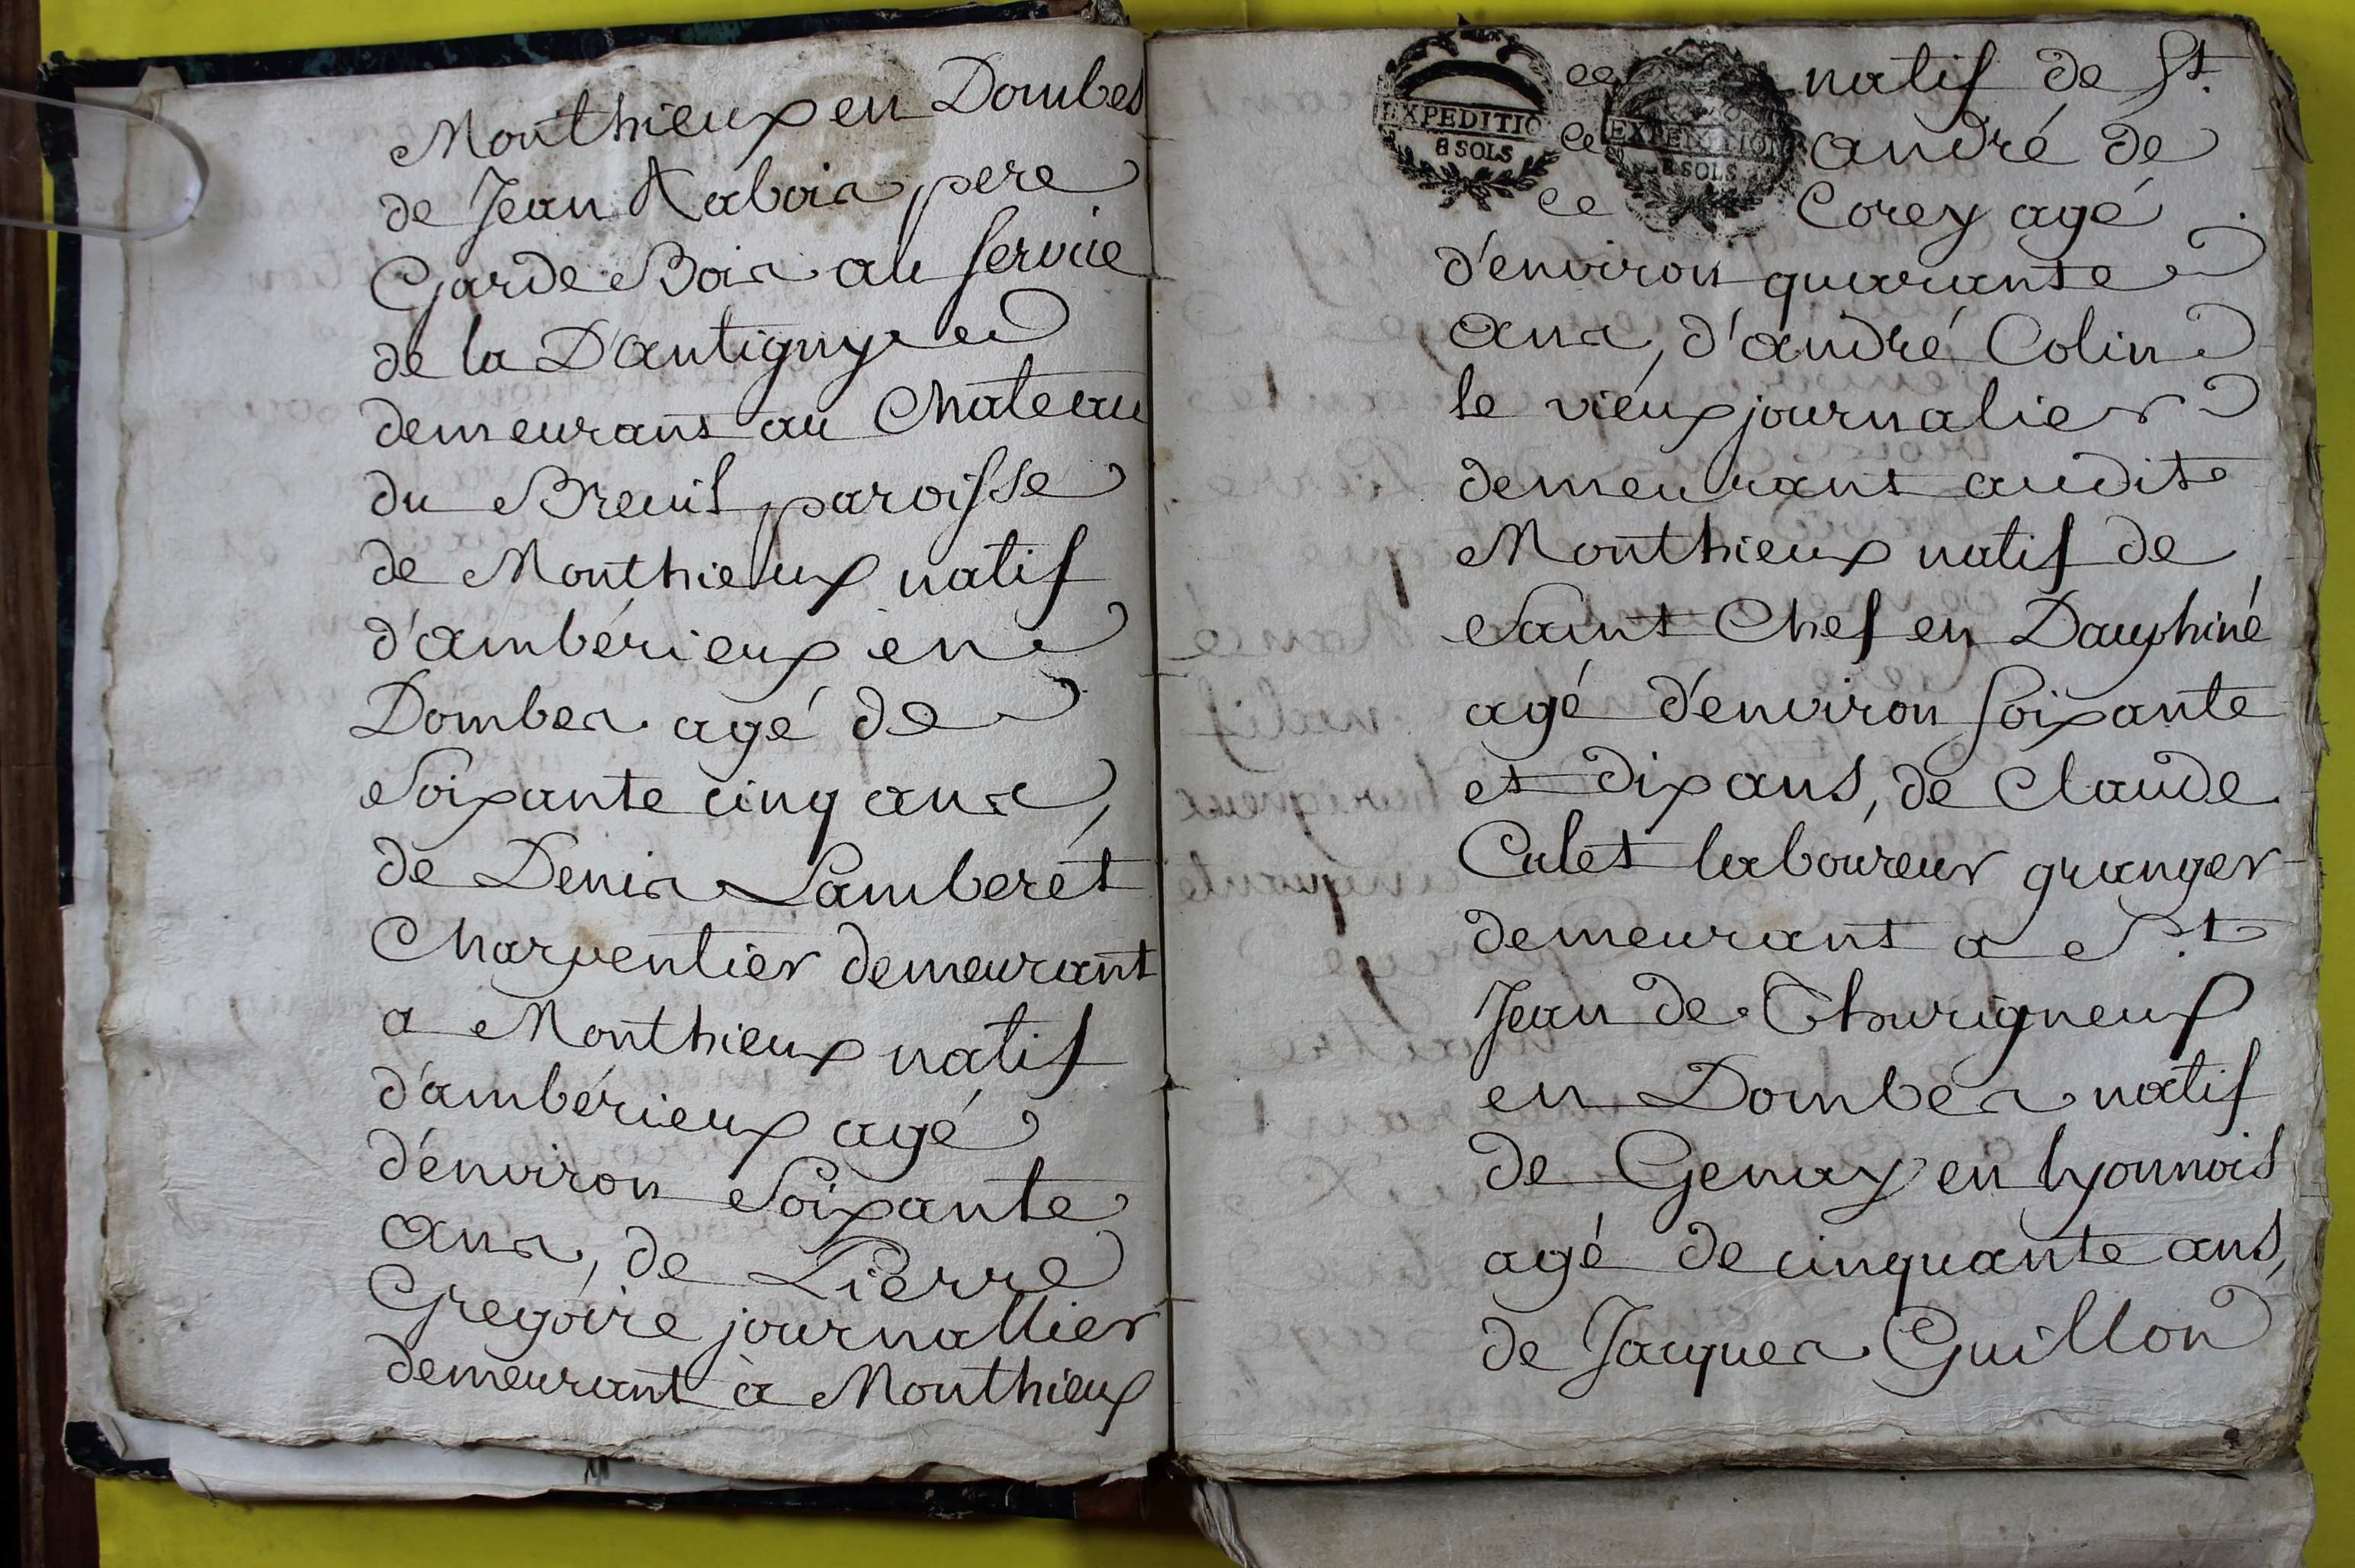 Monthieux en Dombes
de Jean Rabois pere
Garde Bois au service
de la D'antigny
demeurans au Chateau
du Breuil paroisse
de Monthieux natif
d'ambérieux en
Dombes agé de
Soixante cinq ans,
de Denis Lamberet
Charpentier demeurant
a Monthieux natif
d'ambérieux agé
d'énviron Soixante
ans, de Pierre
Gregoire journallier
demeurant à Monthieux
EXPEDITIO
8 SOLS
EXPEDITION
8 SOLS
natif de St.
andré de
Corcy agé
d'environ quarante
ans, d'andré Colin
le vieux journalier
demeurant audit
Monthieux natif de
Saint Chef en Dauphiné
agé d'environ Soixante
et dix ans, de Claude
Calet laboureur granger
demeurant a St
Jean de Thurigneux
en Dombes natif
de Genay en lyonnois
agé de cinquante ans,
de Jacques Guillon